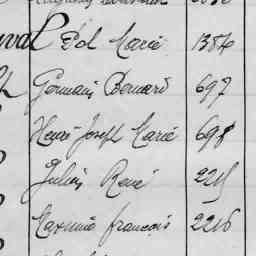 Pol Marie 1384
Germain Bernard 697
Henri Joseph Marie 698
Julien René 2215
Maximin françois 2216